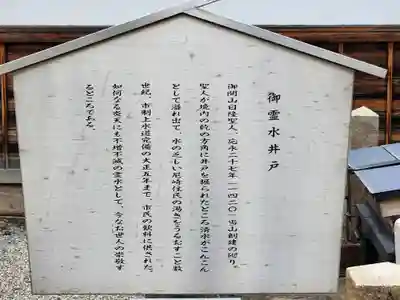 御霊水井戸
御開山日隆聖人、応永二十七年(一四二〇)当山創建の砌り、
聖人が境内の乾の方角に井戸を掘られたところ清水がこんこん
として溢れ出て、水の乏しい尼崎住民の渇きをうるおすこと数
世紀、市制上水道完備の大正五年まで、市民の飲料に供された。
如何なる炎天にも不増不減の霊水として、今なお世人の崇敬す
るところである。